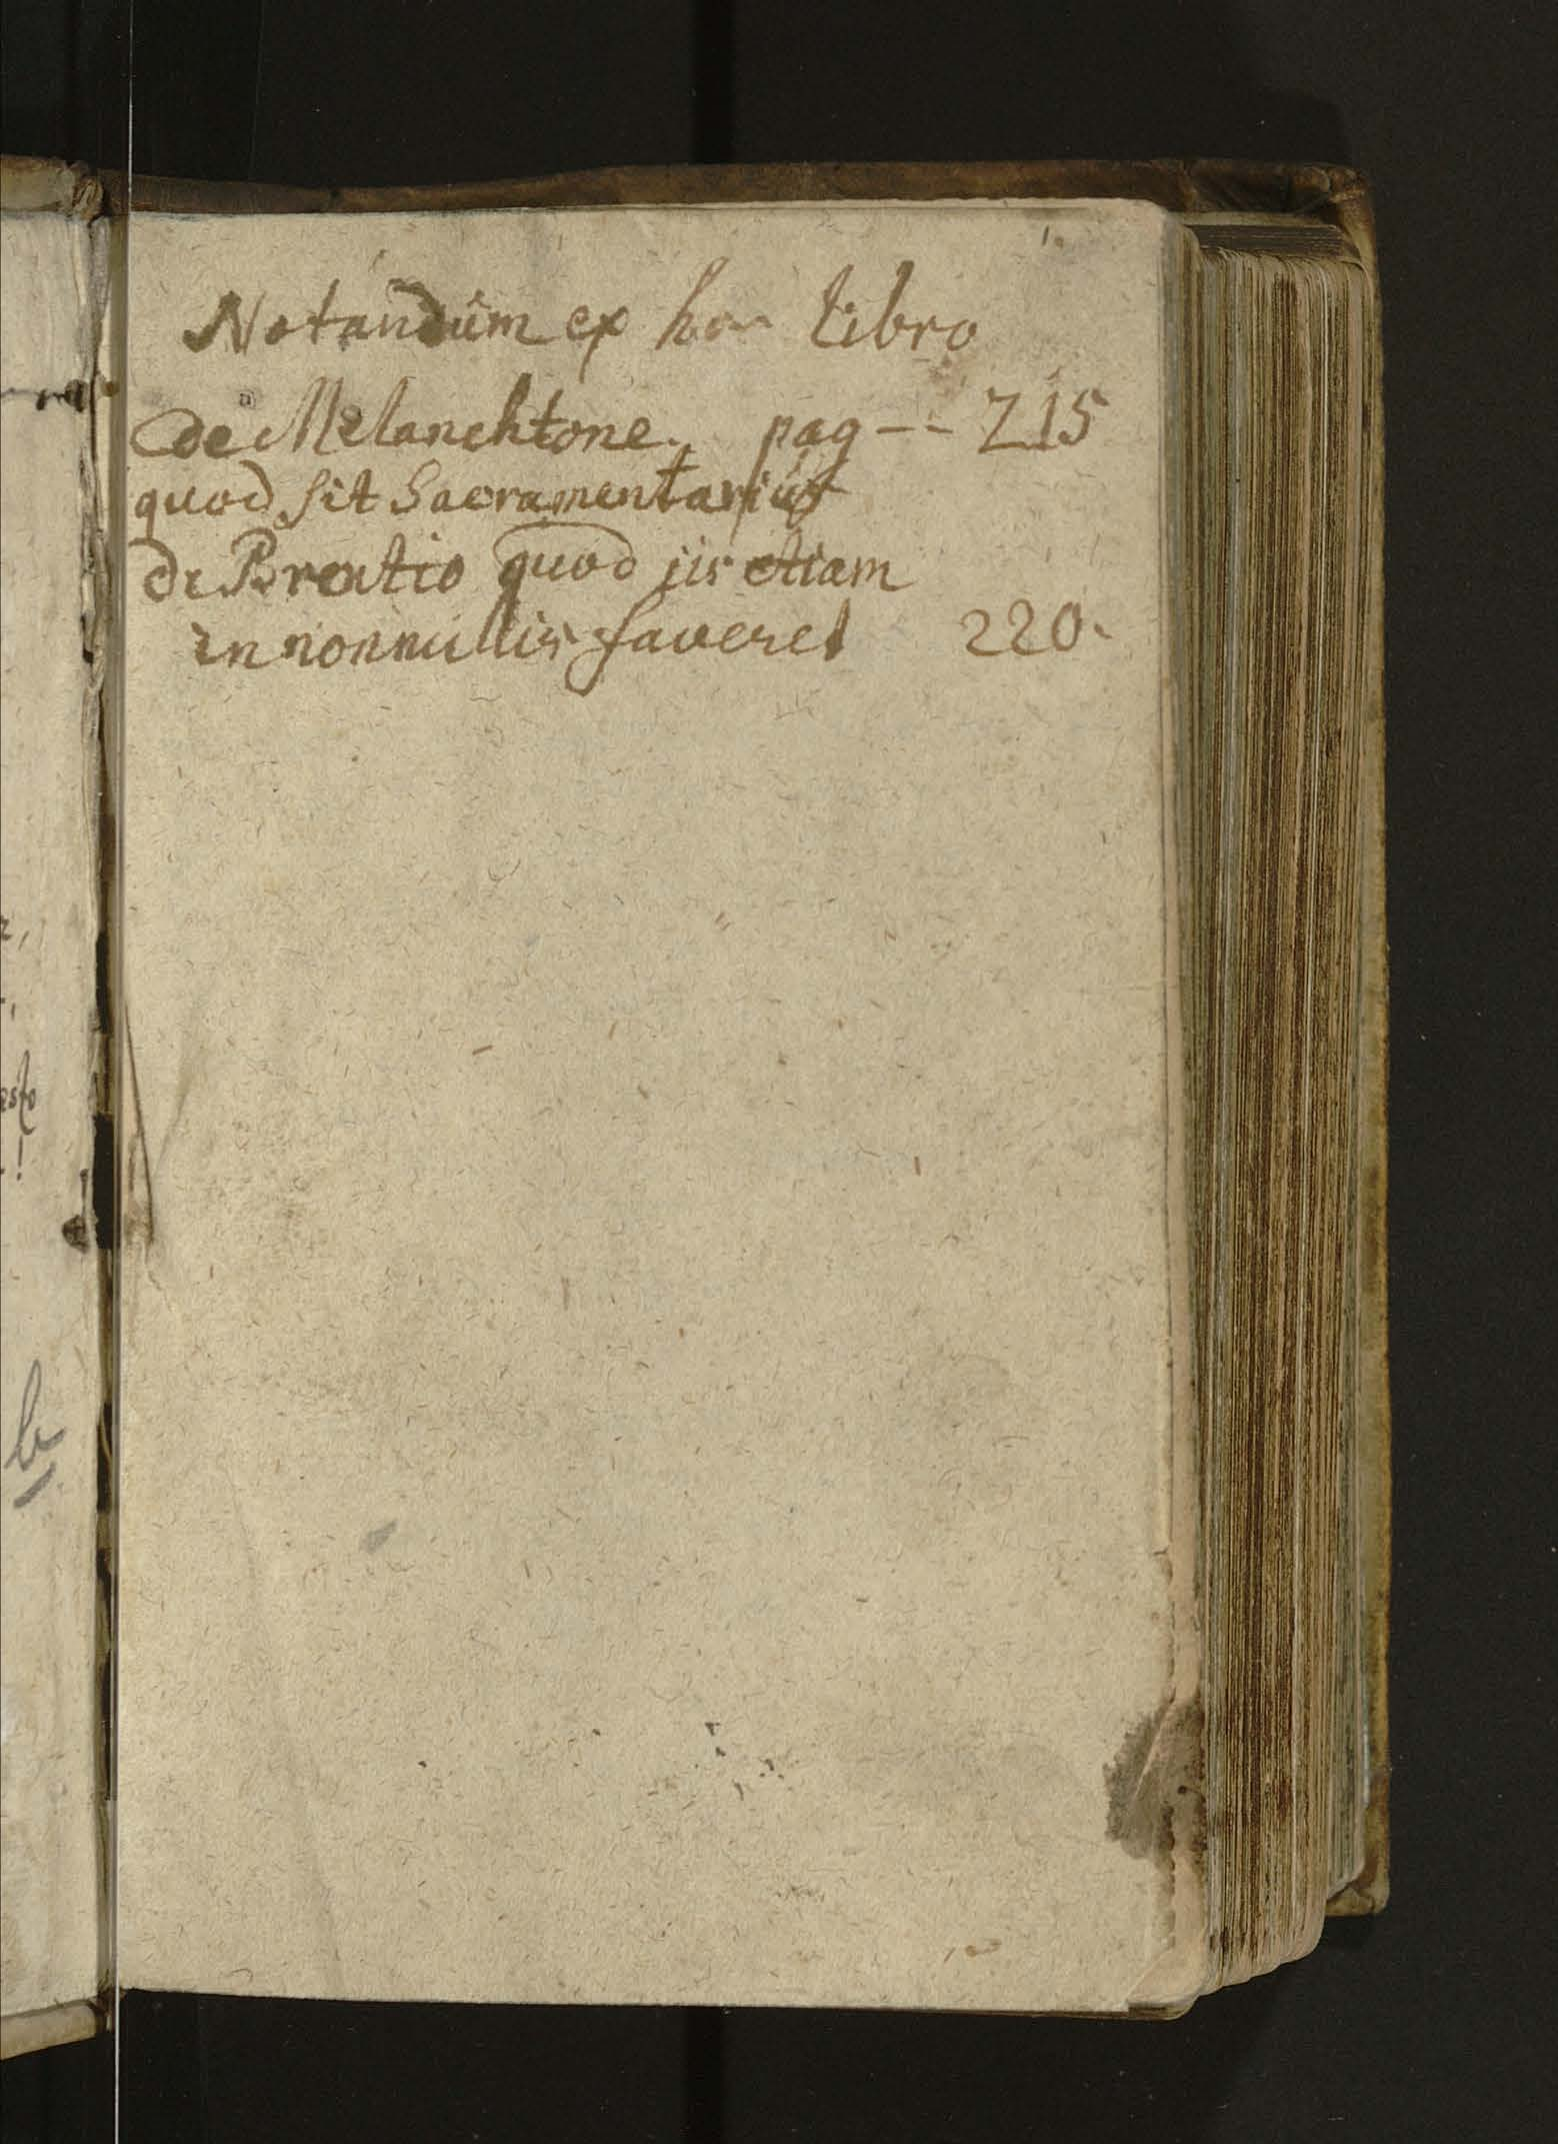 1.
Notandum ex hoc libro
de Melanchtone. pag -- 215
quod sit Sacramentarius
de Brentio quod iis etiam
in nonnullis faveret 220.
esto
!
b